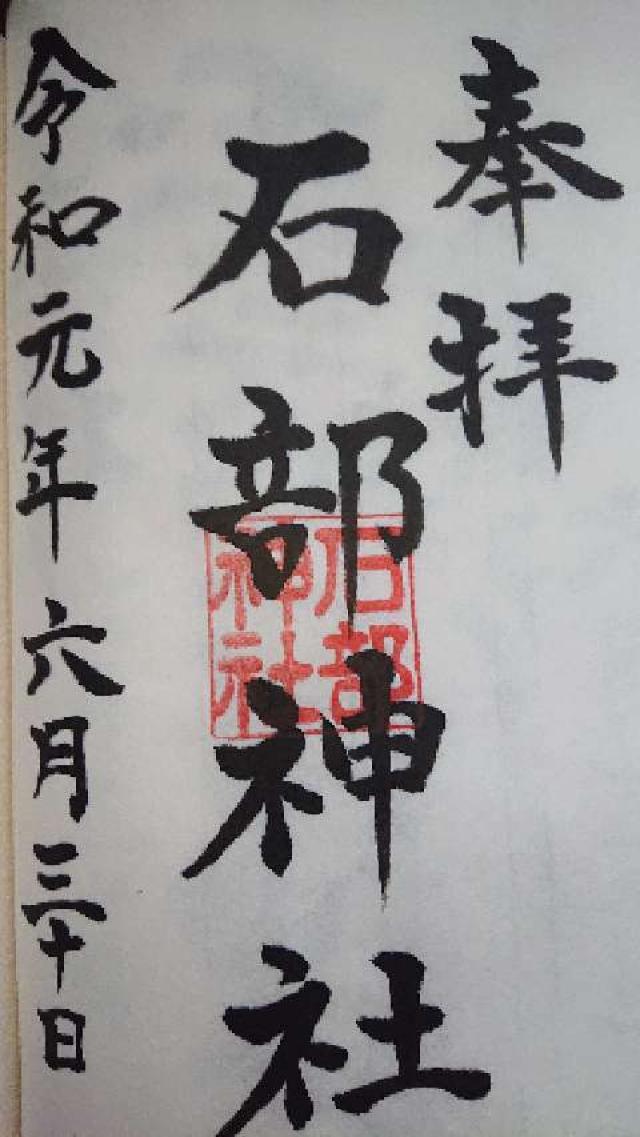 奉拝
石部神社
石部
神社
令和元年六月三十日